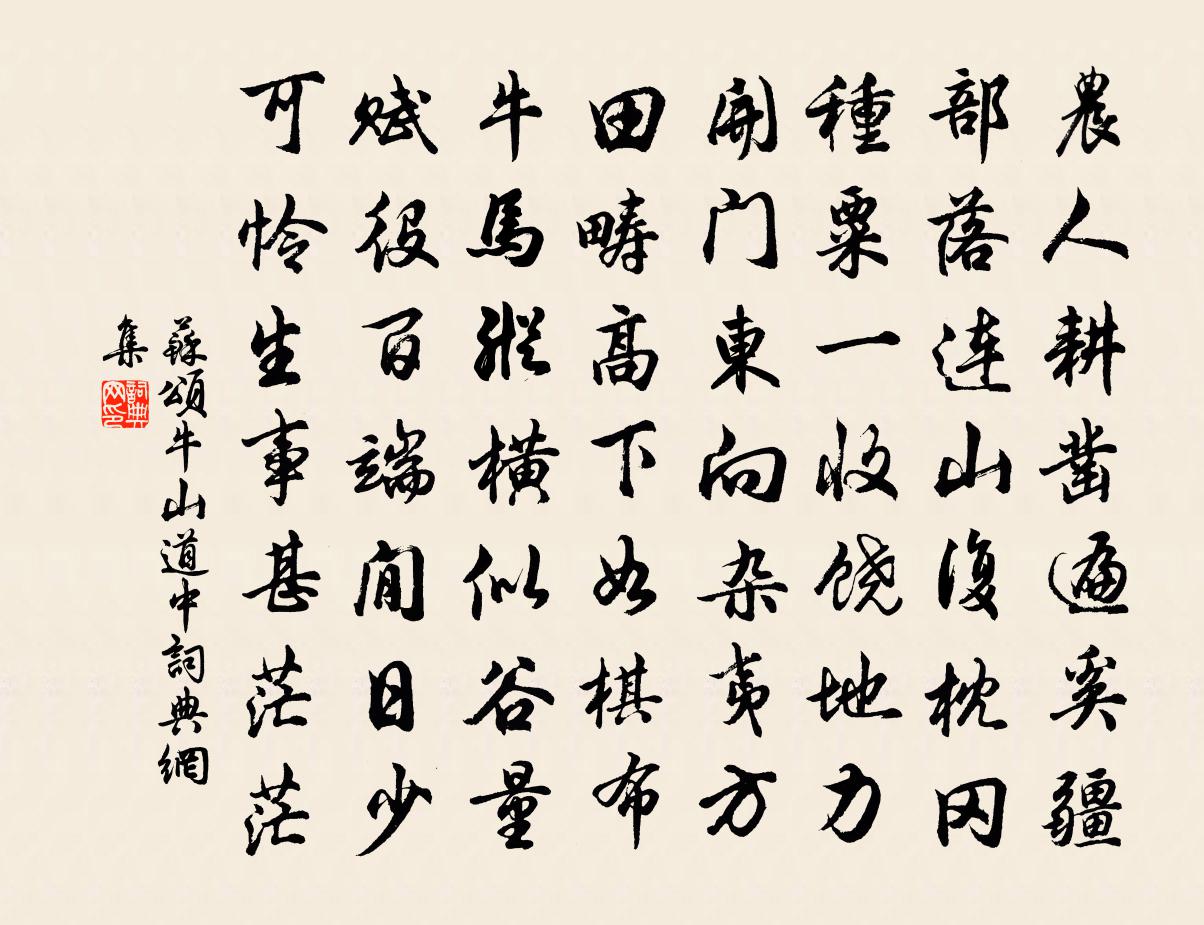 農人耕凿遍奚疆
部落连山復枕冈
種粟一收饶地力
開门東向杂夷方
田畴高下如棋布
牛馬縱横似谷量
赋役百端閒日少
可怜生事甚茫茫
蘇頌牛山道中詞典網
集
詞典网印